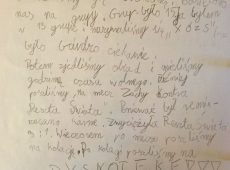 nas na grupy. Grup było 15 ja byłem
w 15 grupie, nazywaliśmy się
było bardzo ciekawie.
Potem zjedliśmy obiad i mieliśmy
godzinę czasu wolnego. Później
poszliśmy na mecz Zuchy kontra
Reszta Świata. Ponieważ był remis
zwyciężyła Reszta Świata
Wieczorem po meczu poszliśmy
na kolację. Po kolacji poszliśmy na
DYSKOTEKĘ